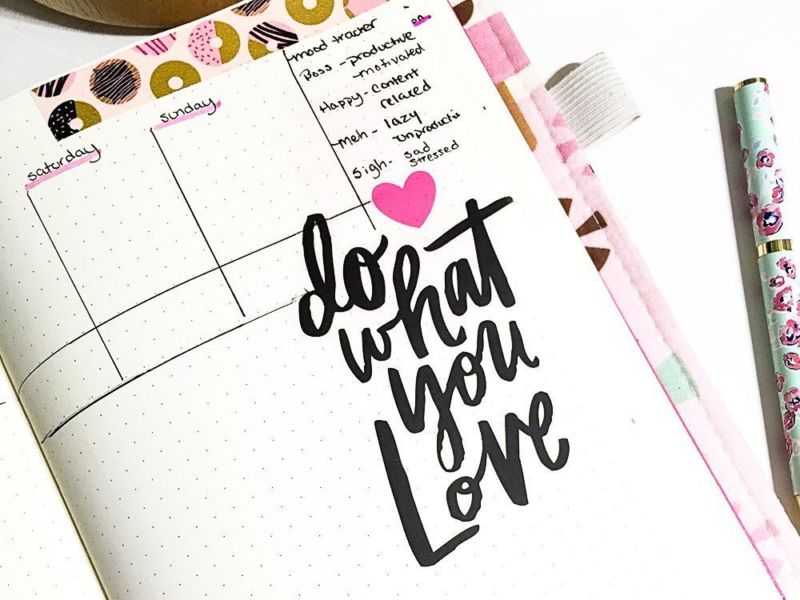 saturday
sunday
mood tracker
Boss - productive
- motivated
Happy - content
relaxed
Meh - lazy
unproducti
Sigh - sad
stressed
do
what
you
Love